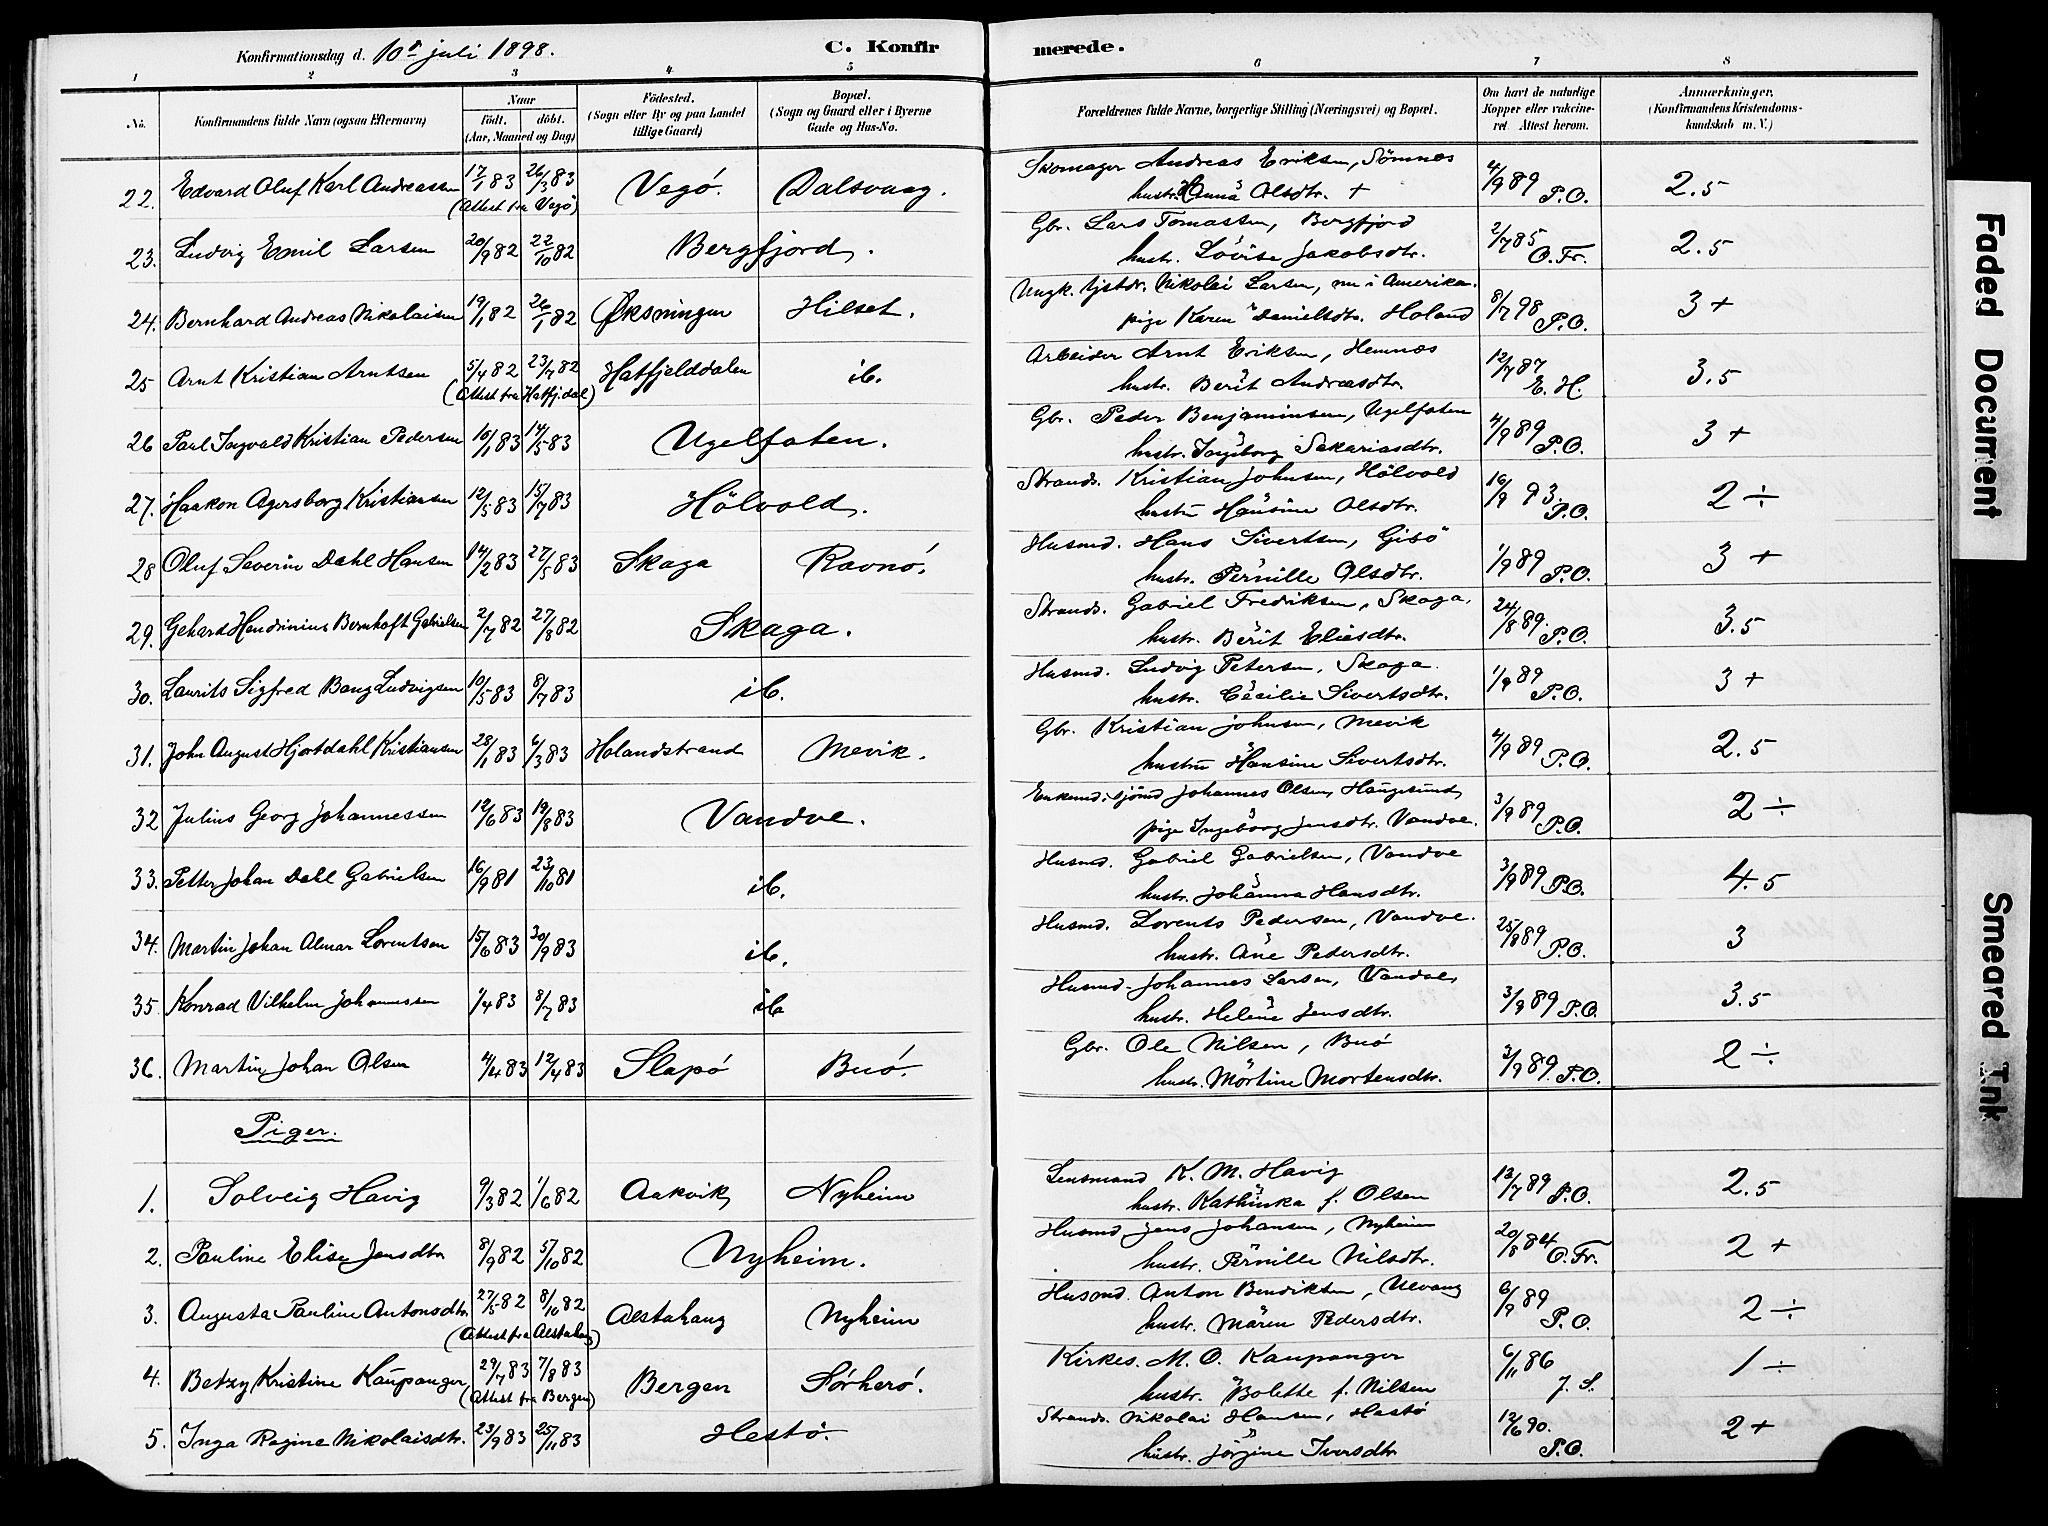 Konfirmationsdag d. 10de juli 1898. C. Konfirmerede.
1 2 3 4 5 6 7 8
No. Konfirmandens fulde Navn (ogsaa Efternavn) Naar født. døbt. (Aar, Maaned og Dag) Födested. (Sogn eller By og paa Landet tillige Gaard) Bopæl. (Sogn og Gaard eller i Byerne Gade og Hus-No. Forældrenes fulde Navne, borgerlige Stilling (Næringsvei) og Bopæl. Om havt de naturlige Kopper eller vakcineret Attest herom. Anmærkninger. (Konfirmandens Kristendomskundskab m. V.)
22. Edvard Oluf Karl Andreassen 17/1 83 26/3 83 (Attest fra Vegö) Vegö. Dalsvaag. Skomager Andreas Eriksen, Sömnes
hustr. Anna Olsdtr. + 4/9 89 P.O. 2.5
23. Ludvig Emil Larsen 20/9 82 22/10 82 Bergfjord. Gbr. Lars Tomassen, Bergfjord
hustr. Lovise Jakobsdtr. 2/7 85 O.Fr. 2.5
24. Bernhard Andreas Nikolaisen 19/1 82 26/1 82 Øksningen Hilset. Ungk. tjstdr. Nikolai Larsen, nu i Amerika.
pige Karen Danielsdtr. Holand 8/7 98 P.O. 3 +
25 Arnt Kristian Arntsen 5/4 82 23/7 82 (Attest fra Hatfj.dal) Hatfjelddalen ib. Arbeider Arnt Eriksen, Hemnæs
hustr. Berit Andreasdtr. 12/7 87 E.H. 3.5
26 Paul Ingvald Kristian Pedersen 10/1 83 14/5 83 Ugelfoten. Gbr. Peder Benjaminsen, Ugelfoten
hustr. Ingeborg Sakariasdtr. 4/9 89 P.O. 3 +
27. Haakon Agersborg Kristiansen 12/5 83 15/7 83 Hölvold. Strands. Kristian Johnsen, Hölvold
hustru Hansine Olsdtr. 16/9 93. P.O. 2 ÷
28 Oluf Severin Dahl Hansen 14/2 83 27/5 83 Skaga Ravnö. Husmd. Hans Sivertsen, Gisö
hustr. Pernille Olsdtr. 1/9 89 P.O. 3 +
29. Gehard Hendrinius Bernhoft Gabrielsen 2/7 82 27/8 82 Skaga. Strands. Gabriel Fredriksen, Skaga.
hustr. Berit Eliesdtr. 24/8 89. P.O. 3.5
30. Laurits Sigfred Bang Ludvigsen 10/5 83 8/7 83 ib. Husmd. Ludvig Petersen, Skaga.
hustr. Cecilie Sivertsdtr. 1/9 89 P.O. 3 +
31. John August Hjortdahl Kristiansen 28/1 83 6/3 83 Holandstrand Mevik. Gbr. Kristian Johnsen, Mevik
hustru Hansine Sivertsdtr. 4/9 89 P.O. 2.5
32 Julius Georg Johannessen 12/6 83 19/8 83 Vandve. Enkemd. sjömd Johannes Olsen, Haugesund,
pige Ingeborg Jensdtr. Vandve. 3/9 89 P.O. 2 ÷
33. Petter Johan Dahl Gabrielsen 16/9 81 23/10 81 ib. Husmd. Gabriel Gabrielsen, Vandve
hustr. Johanna Hansdtr. 3/9 89 P.O. 4.5
34. Martin Johan Almar Lorentsen 15/6 83 30/9 83 ib. Husmd. Lorents Pedersen, Vandve.
hustr. Ane Pedersdtr. 25/8 89 P.O. 3
35. Konrad Vilhelm Johannessen 1/4 83 8/7 83 ib Husmd. Johannes Larsen, Vandve,
hustr. Helene Jensdtr. 3/9 89 P.O. 3.5
36. Martin Johan Olsen 4/4 83 12/4 83 Slapö Buö. Gbr. Ole Nilsen, Buö
hustr. Mörtine Mortensdtr. 3/9 89. P.O. 2 ÷
Piger.
1. Solveig Havig 9/3 82 1/6 82 Aakvik Nyheim Lensmand K. M. Havig
hustr. Kathinka f. Olsen 13/7 89 P.O. 2.5
2. Pauline Elise Jensdtr 8/9 82 5/10 82 Nyheim. Husmd Jens Johansen, Nyheim
hustr. Pernille Nilsdtr. 20/8 84 O.Fr. 2 +
3. Augusta Pauline Antonsdtr. 27/5 82 8/10 82 (Attest fra Alstahaug) Alstahaug Nyheim Husmd. Anton Bendiktsen, Ulvang
hustr. Maren Pedersdtr. 6/9 89 P.O. 2 ÷
4. Betzy Kristine Kaupanger 29/7 83 7/8 83 (Attest fra Bergen) Bergen Sörherö. Kirkes. M. O. Kaupanger
hustr. Bolette f. Nilsen 6/11 86 J.S. 1 ÷
5. Inga Regine Nikolaisdtr. 23/9 83 25/11 83 Hestö. Strands. Nikolai Hansen, Hestö
hustr. Jörgine Iversdtr 12/6 90. P.O. 2 +
Faded Document
Smeared Ink